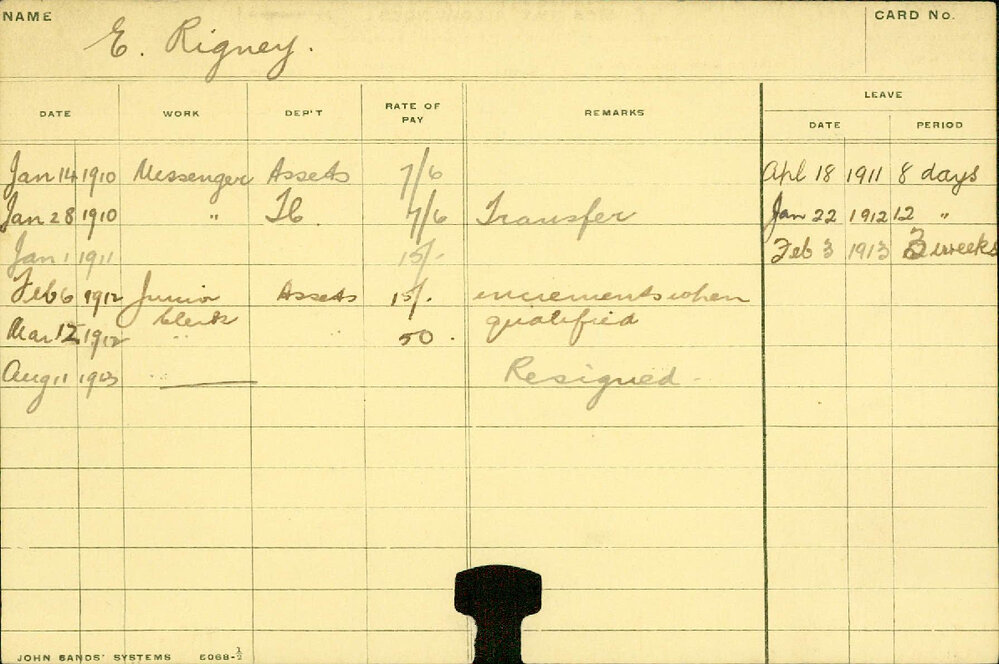 NAME
E. Rigney.
CARD No.
DATE WORK DEP'T RATE OF PAY REMARKS LEAVE
DATE PERIOD
Jan 14 1910 Messenger Assets 7/6 Apl 18 1911 8 days
Jan 28 1910 " 7/6 Transfer Jan 22 1912 12 "
Jan 1 1911 15/- Feb 3 1913 3 weeks
Feb 6 1912 Junior Assets 15/. increments when
Clerk qualified
Mar 12 1912 " " 50.
Aug 11 1913 Resigned.
JOHN SANDS' SYSTEMS 6068-½